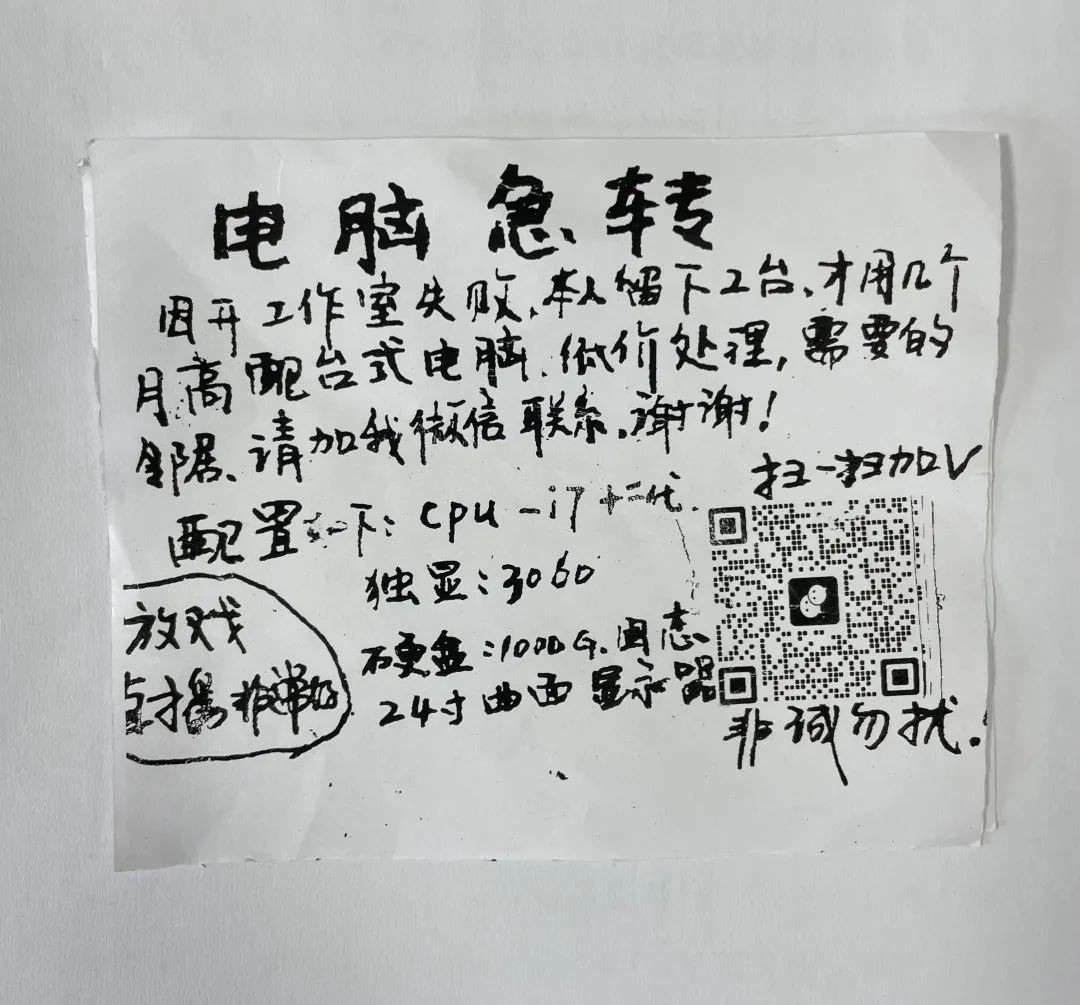 电脑急转
因开工作室失败,本人留下2台、才用几个
月高配台式电脑.低价处理,需要的
邻居、请加我微信联系.谢谢!
扫一扫加V
配置如下: cpu-i7十二代.
独显:3060
硬盘:1000G.固态
24寸曲面显示器
放戏
直播非常好
非诚勿扰.